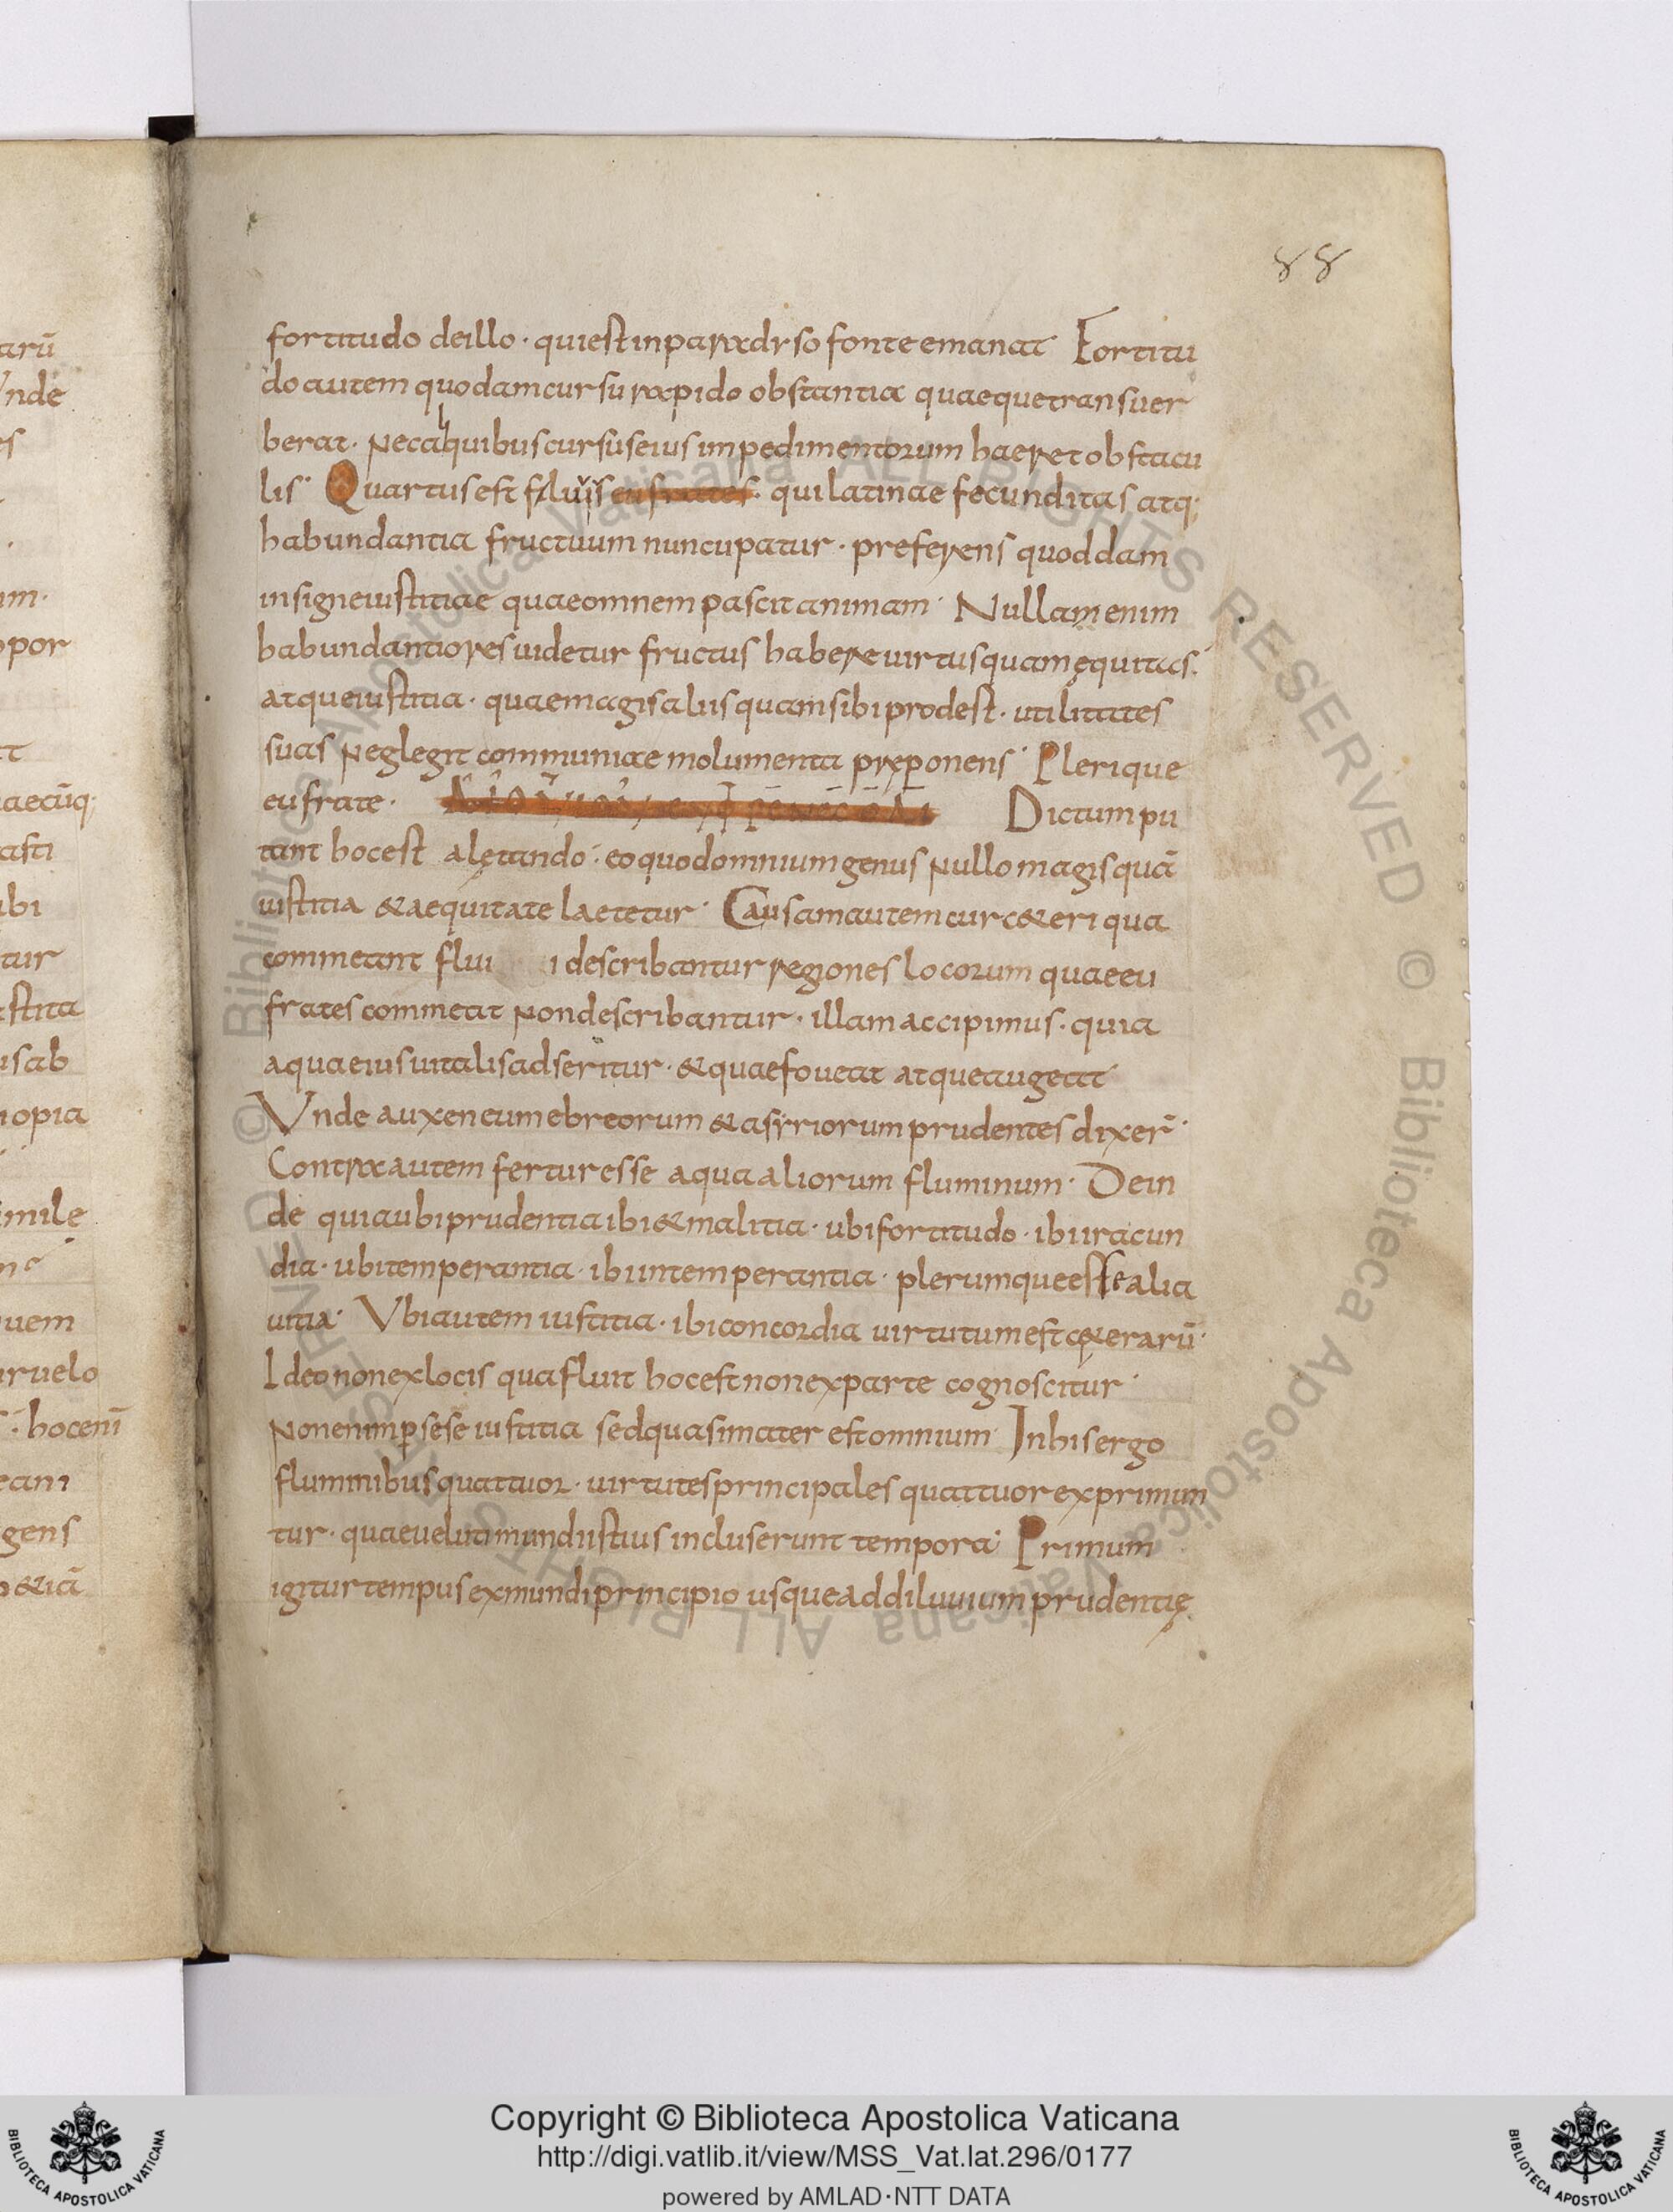 88
fortitudo deillo · quiestinparadyso fonteemanat Fortitu
do autem quodamcursurapido obstantia quaequetransuer
berat · Necaliquibuscursuseius impedimentorum haeret obstacu
lis · Quartusest fluuius eufrates · quilatinae fecunditas atq;
habundantia fructuum nuncupatur · preferens quoddam
insigneiustitiae quaeomnempascit animam · Nullam enim
habundantiores uidetur fructus habere uirtus quam ęquitas ·
atqueiustitia · quaemagisaliis quamsibiprodest · utilitates
suas neglegit communia emolumenta pręponens · Plerique
eufrate · Dictum pu
tant hocest alętando · eoquodomnium genus nullomagisquā
iustitia & aequitate laetetur · Causamautem cur c&eri qua
commeant flui i describantur regiones locorum quaeeu
frates commeat nondescribantur · illam accipimus · quia
aquaeius uitalisadseritur · & quaefoueat atqueaugeat
Vnde auxen eum ebreorum & asyriorum prudentes dixer̄ ·
Contra autem fertur esse aqua aliorum fluminum · Dein
de quiaubiprudentia ibi & malitia · ubifortitudo · ibi iracun
dia · ubitemperantia · ibi intemperantia · plerumqueest & alia
uitia · Vbiautem iustitia · ibiconcordia uirtutum est cęterarū ·
Ideo nonexlocis quafluit hocestnonexparte cognoscitur ·
Nonenimp̱sese iustitia sedquasimater est omnium · Inhisergo
fluminibusquattuor · uirtutesprincipales quattuor exprimun
tur · quaeuelutimundiistius incluserunt tempora · Primum
igitur tempus exmundiprincipio usqueaddiluuium prudentię
arū
Vnde
es
um ·
opor
aecūq;
asti
ibi
tur
stita
usab
iopia
imile
uem
uruelo
· hocenī
eani
gens
&iā
© Biblioteca Apostolica Vaticana ALL RIGHTS RESERVED © Biblioteca Apostolica Vaticana ALL RIGHTS RESERVED
Copyright © Biblioteca Apostolica Vaticana
http://digi.vatlib.it/view/MSS_Vat.lat.296/0177
powered by AMLAD·NTT DATA
BIBLIOTECA APOSTOLICA VATICANA
BIBLIOTECA APOSTOLICA VATICANA